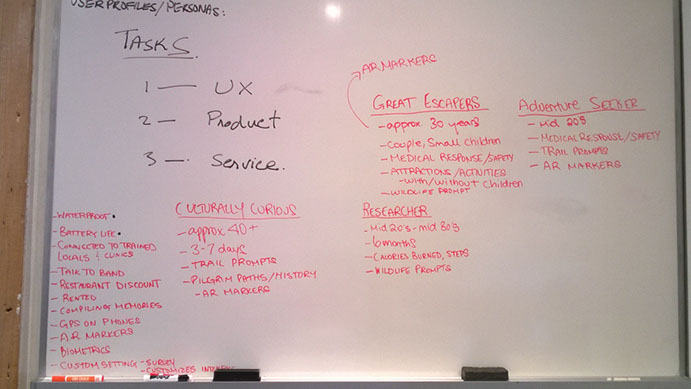 USER PROFILES/PERSONAS:
TASKS
1 — UX
2 — Product
3 — Service.
AR MARKERS
GREAT ESCAPERS
- approx 30 years
- Couple, Small Children
- MEDICAL RESPONSE/SAFETY
- ATTRACTIONS/ACTIVITIES
- with/without Children
- WILDLIFE PROMPT
Adventure SEEKER
- Mid 20s
- MEDICAL RESPONSE/SAFETY
- TRAIL PROMPTS
- AR MARKERS
- WATERPROOF •
- BATTERY LIFE •
- CONNECTED TO TRAINED
LOCALS & CLINICS
- TALK TO BAND
- RESTAURANT DISCOUNT
- RENTED
- COMPILING MEMORIES
- GPS ON PHONES
- AR MARKERS
- BIOMETRICS
- CUSTOM SETTING - SURVEY
- CUSTOMIZES
CULTURALLY CURIOUS
- approx 40+
- 3-7 days
- TRAIL PROMPTS
- PILGRIM PATHS/HISTORY
- AR MARKERS
RESEARCHER
- Mid 20's - mid 30's
- 6 months
- CALORIES BURNED, STEPS
- WILDLIFE PROMPTS